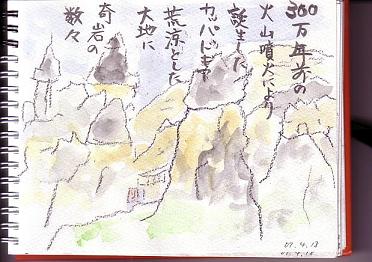 300万年前の
火山噴火により
誕生した
カッパドキア
荒涼とした
大地に
奇岩の
数々
07.4.13